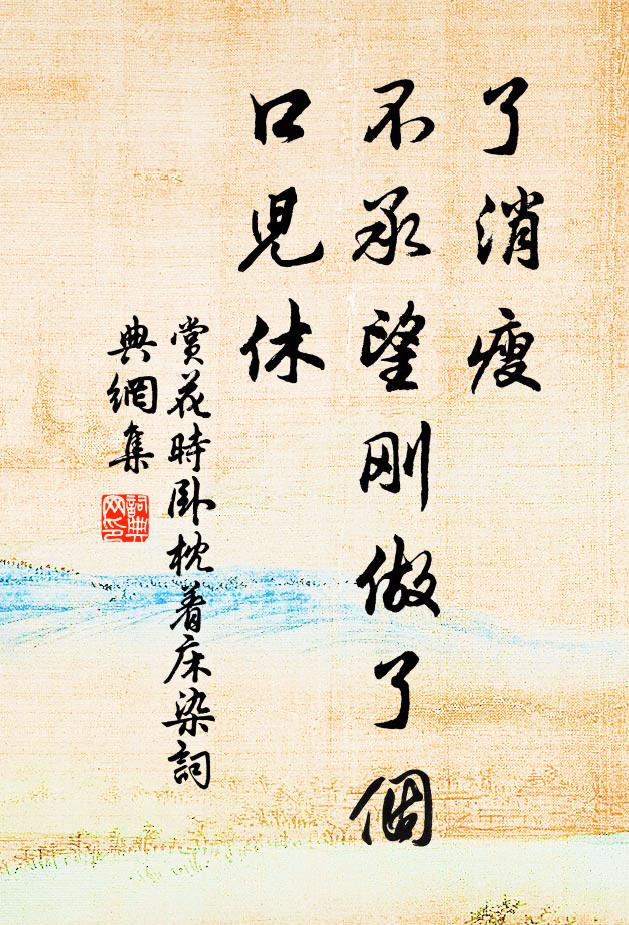 了消瘦
不承望刚做了個
口児休
赏花時卧枕着床染詞
典網集
詞典
网印